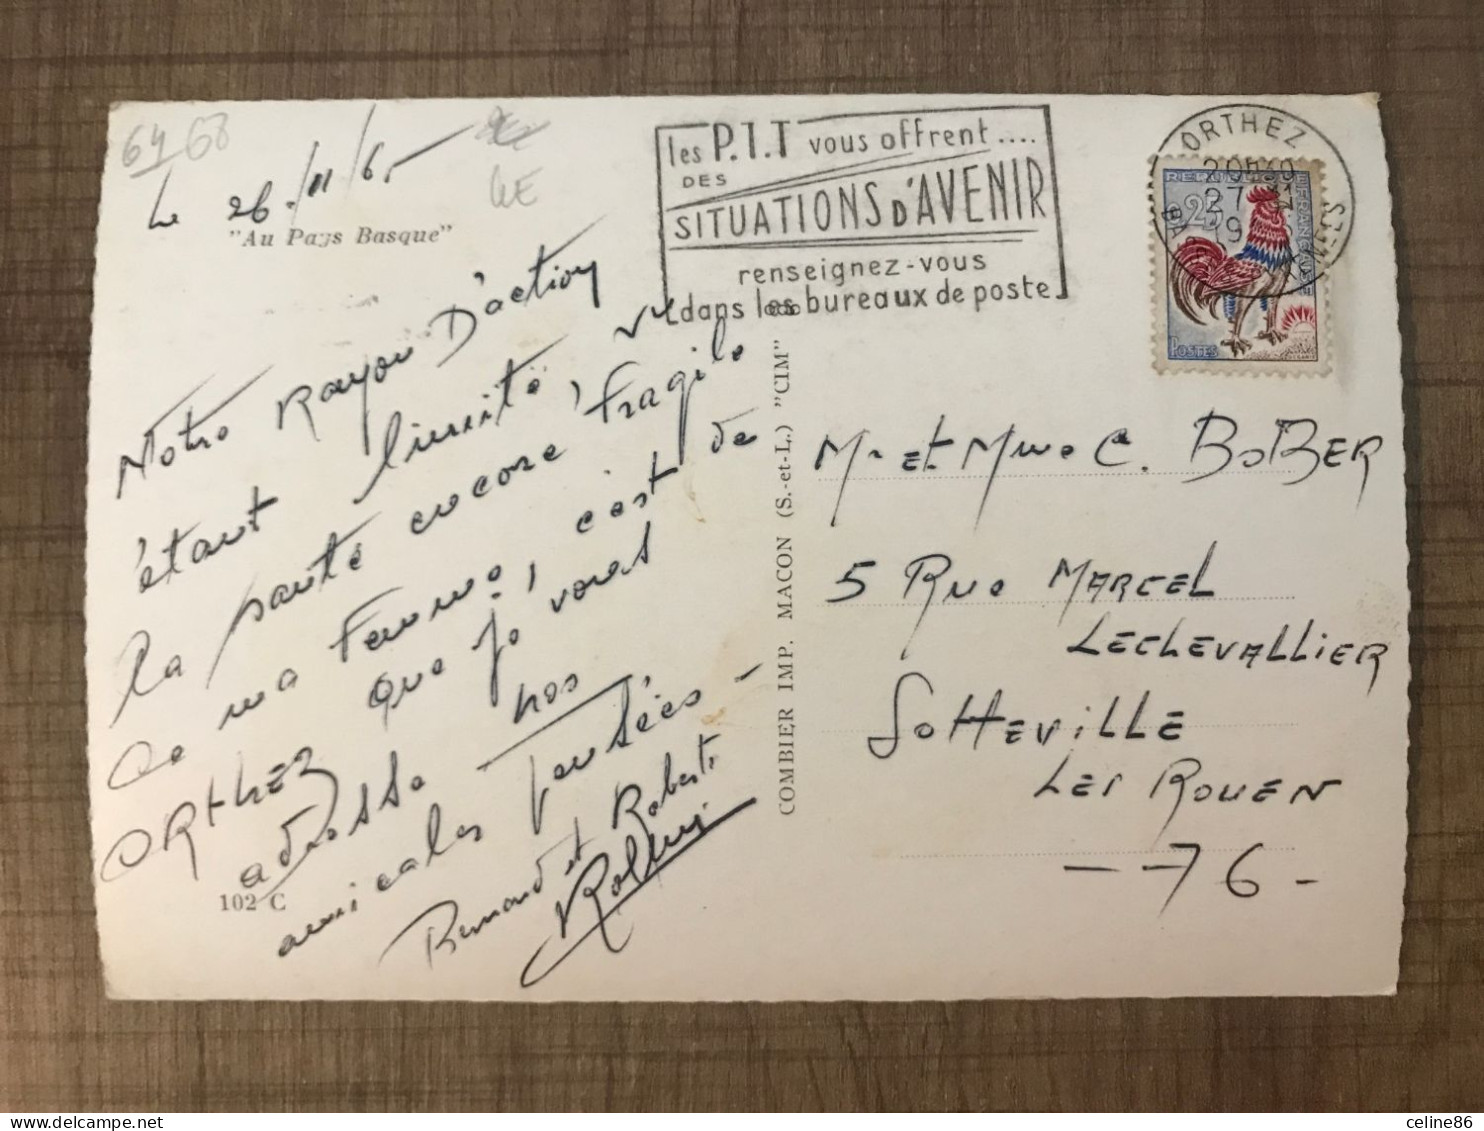 64 68
LE
Le 26/11/65
"Au Pays Basque"
Notre Rayon D'action
étant limité vu
la santé encore Fragile
de ma Femme, c'est de
ORTHEZ que je vous
adresse nos
amicales pensées -
Bernard et Roberte
102 C
COMBIER IMP. MACON (S.-et-L.) "CIM"
les P.T.T vous offrent....
DES
SITUATIONS D'AVENIR
renseignez-vous
dans les bureaux de poste
ORTHEZ
27
19
REPUBLIQUE FRANCAISE
0,25
POSTES
Mr et Mme C. BOBER
5 Rue MARCEL
LECHEVALLIER
SOTTEVILLE
LES ROUEN
- 76 -
celine86